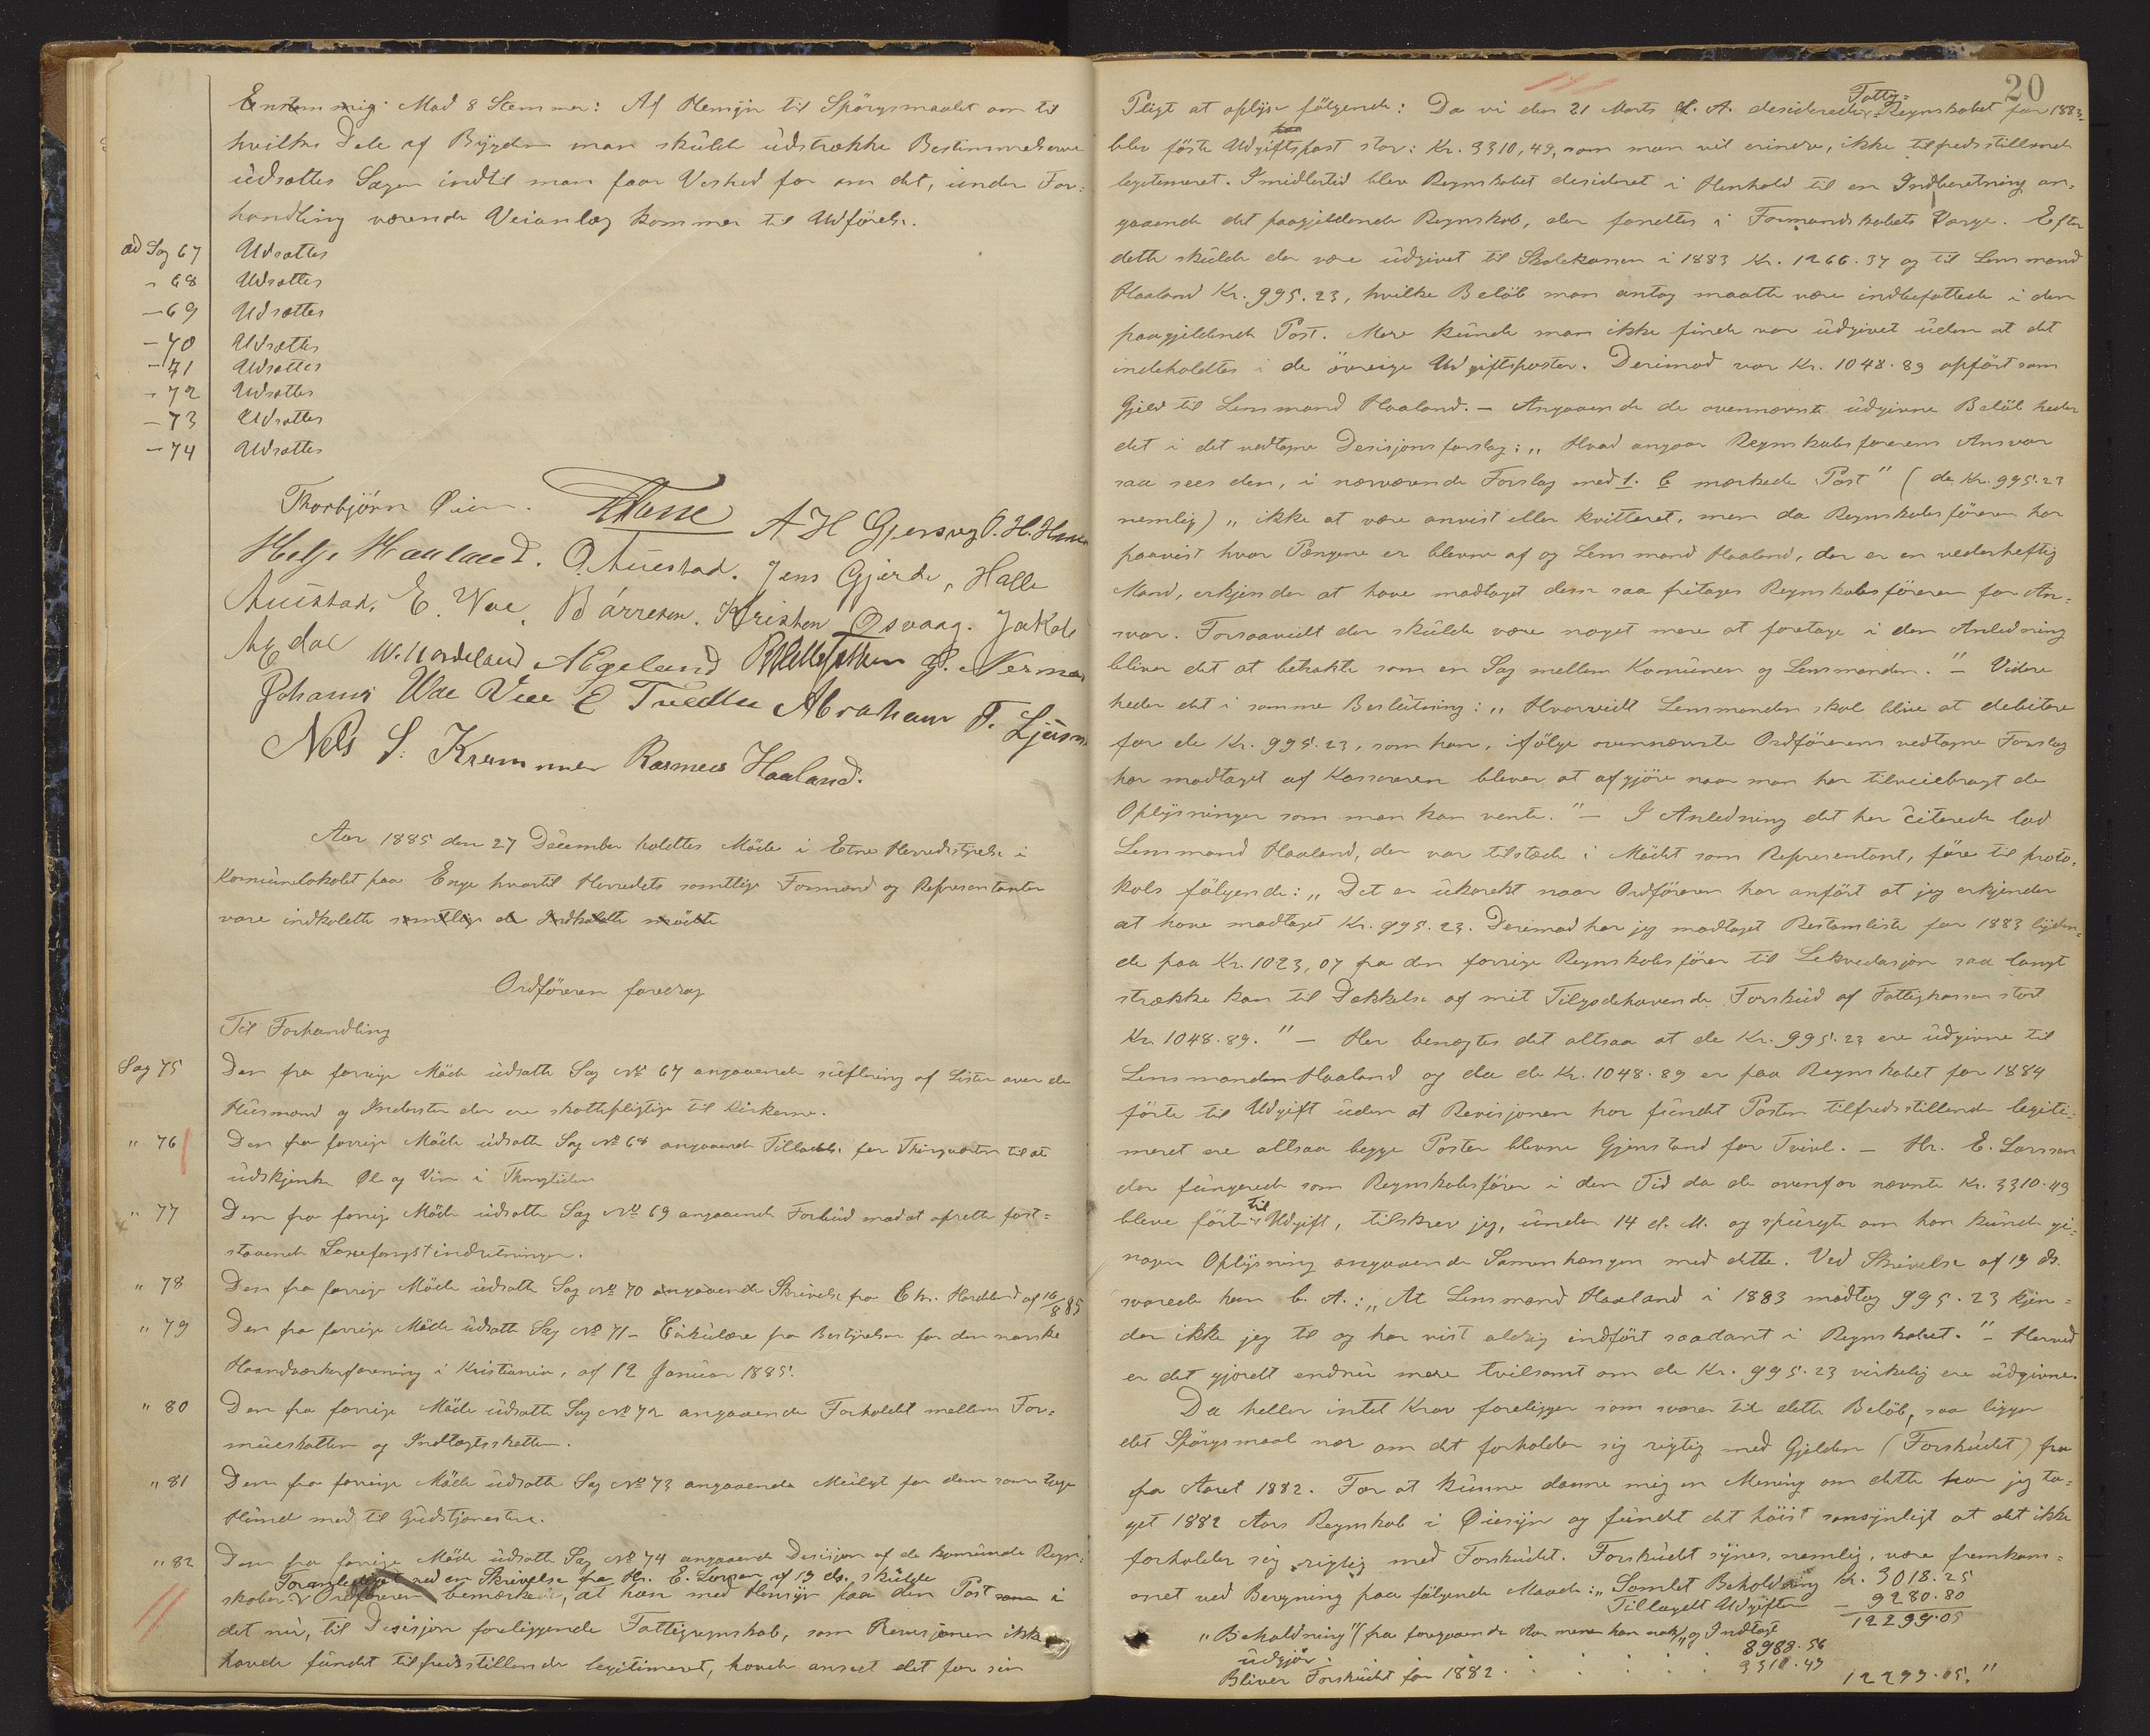 Enstemmig. Mod 8 Stemmer: Af Hensyn til Spörgsmaalet om til
hvilke Dele af Bygden man skulde udstrække Bestemmelserne
udsattes Sagen indtil man faar Vished for om det, under For-
handling værende Veianlæg kommer til Udförelse.
ad Sag 67 Udsattes
" 68 Udsattes
- 69 Udsattes
- 70 Udsattes
- 71 Udsattes
- 72 Udsattes
- 73 Udsattes
- 74 Udsattes
Thorbjörn Øien. A H Gjersvig O. H.
Helje Haaland. O. Austad. Jens Gjerde, Halle
Austad. E. Vae, Börresen. Kristen Osvaag. Jakob
W. Nordeland A Egeland
Johans Vae E Tvedte Abraham T.
Nels S. Krammer Rasmus Haaland.
Aar 1885 den 27 December holdtes Möde i Etne Herredsstyrelse i
Komunelokalet paa Enge hvortil Herredets samtlige Formænd og Repræsentanter
vare indkaldte samtlige de Indkaldte mödte
Ordföreren foredrog
Til Forhandling
Sag 75 Den fra forrige Möde udsatte Sag No 67 angaaende af Lister over de
Husmænd og Inderster der ere skattepligtige til Kirkerne.
" 76 Den fra forrige Möde udsatte Sag No 68 angaaende Tilladelse for Thingværten til at
udskjenke Øl og Vin i Thingtiden
" 77 Den fra forrige Möde udsatte Sag No 69 angaaende Forbud mod at oprette fast-
staaende Laxefangstindretninger.
" 78 Den fra forrige Möde udsatte Sag No 70 angaaende Skrivelse fra Chr. Hardeland af 16/8 85
" 79 Den fra forrige Möde udsatte Sag No 71 - Cirkulære fra Bestyrelsen for den norske
Haandværkerforening i Kristiania, af 12 Januar 1885.
" 80 Den fra forrige Möde udsatte Sag No 72 angaaende Forholdet mellem For-
mueskatten og Indtægtsskatten.
" 81 Den fra forrige Möde udsatte Sag No 73 angaaende Mulgt for dem som tage
Hund med til Gudstjenesten.
" 82 Den fra forrige Möde udsatte Sag No 74 angaaende Desisjon af de komunale Regn-
Foranlediget ved en Skrivelse fra Hr. E. Larsen af 19 ds. skulde
skaber. Ordföreren bemærke, at han med Hensyn paa den Post som i
det nu, til Desisjon foreliggende Fattigregnskab, som Revisjonen ikke
havde fundet tilfredsstillende legitimeret, havde anseet det for sin
20
Fattig-
Pligt at oplyse fölgende: Da vi den 21 Marts d. A. desiderede Regnskabet for 1883,
blev förste Udgiftspost stor: Kr. 3310,49, som man vil erindre, ikke tilfredsstillende
legitimeret. Imidlertid blev Regnskabet desideret i Henhold til en Indberetning an-
gaaende det paagjeldende Regnskab, der fandtes i Formandskabets Værge. Efter
dette skulde der være udgivet til Skolekassen i 1883 Kr. 1266.37 og til Lensmand
Haaland Kr. 995.23, hvilke Belöb man antog maatte være indbefattede i den
paagjeldende Post. Mere kunde man ikke finde var udgivet uden at det
indeholdtes i de övrige Udgiftsposter. Derimod var Kr. 1048.89 opfört som
Gjeld til Lensmand Haaland. - Angaaende de ovennævnte udgivne Belöb heder
det i det vedtagne Desisjonsforslag: "Hvad angaar Regnskabsförerens Ansvar
saa sees den, i nærværende Forslag med 1. b mærkede Post" (de Kr. 995.23
nemlig) "ikke at være anvist eller kvitteret, men da Regnskabsföreren har
paavist hvor Pengene er blevne af og Lensmand Haaland, der er en vederheftig
Mand, erkjender at have modtaget dem saa fritages Regnskabsföreren for An-
svar. Forsaavidt der skulde være noget mere at foretage i den Anledning
bliver det at betrakte som en Sag mellem Komunen og Lensmanden." - Videre
heder det i samme Beslutning: "Hvorvidt Lensmanden skal blive at debitere
for de Kr. 995.23, som han, ifölge ovennævnte Ordförerens vedtagne Forslag
har modtaget af Kassereren bliver at afgjöre naar man har tilveiebragt de
Oplysninger som man kan vente." - I Anledning det her citerede lod
Lensmand Haaland, der var tilstede i Mödet som Representant, före til proto-
kols fölgende: "Det er ukorekt naar Ordföreren har anfört at jeg erkjender
at have modtaget Kr. 995.23. Derimod har jeg modtaget Restanseliste for 1883 lyden-
de paa Kr. 1023,07 fra den forrige Regnskabsförer til Lekvedasjon saa langt
strække kan til Dækkelse af mit Tilgodehavende Forskud af Fattigkassen stort
Kr. 1048.89." - Her benægtes det altsaa at de Kr. 995.23 ere udgivne til
Lensmanden Haaland og da de Kr. 1048.89 er paa Regnskabet for 1884
förte til Udgift uden at Revisjonen har fundet Posten tilfredsstillende legiti-
meret ere altsaa begge Poster blevne Gjenstand for Tvivl. - Hr. E. Larsen
der fungerede som Regnskabsförer i den Tid da de ovenfor nævnte Kr. 3310.49
bleve förte til Udgift, tilskrev jeg, under 14 d. M. og spurgte om han kunde gi-
nogen Oplysning angaaende Sammenhængen med dette. Ved Skrivelse af 19 ds.
svarede han b. A.: "At Lensmand Haaland i 1883 modtog 995.23 kjen-
der ikke jeg til og har vist aldrig indfört saadant i Regnskabet." - Herved
er det gjordt endnu mere tvilsomt om de Kr. 995.23 virkelig ere udgivne.
Da heller intet Krav foreligger som svarer til dette Belöb, saa ligger
det Spörgsmaal nær om det forholder sig rigtig med Gjelden (Forskudet) fra
fra Aaret 1882. For at kunne danne mig en Mening om dette har jeg ta-
get 1882 Aars Regnskab i Øiesyn og fundet det höist sansynligt at det ikke
forholder sig rigtig med Forskudet. Forskudet synes, nemlig, være fremkom-
met ved Beregning paa fölgende Maade: "Samlet Beholdning Kr. 3018.25
Tillagdt Udgiften - 9280.80
12299.05
"Beholdning" (fra foregaaende Aar mener han nok) "og Indtægt
udgjör . . . . . . 8988.56
Bliver Forskudet for 1882 . . . . . 3310.49
12299.05."